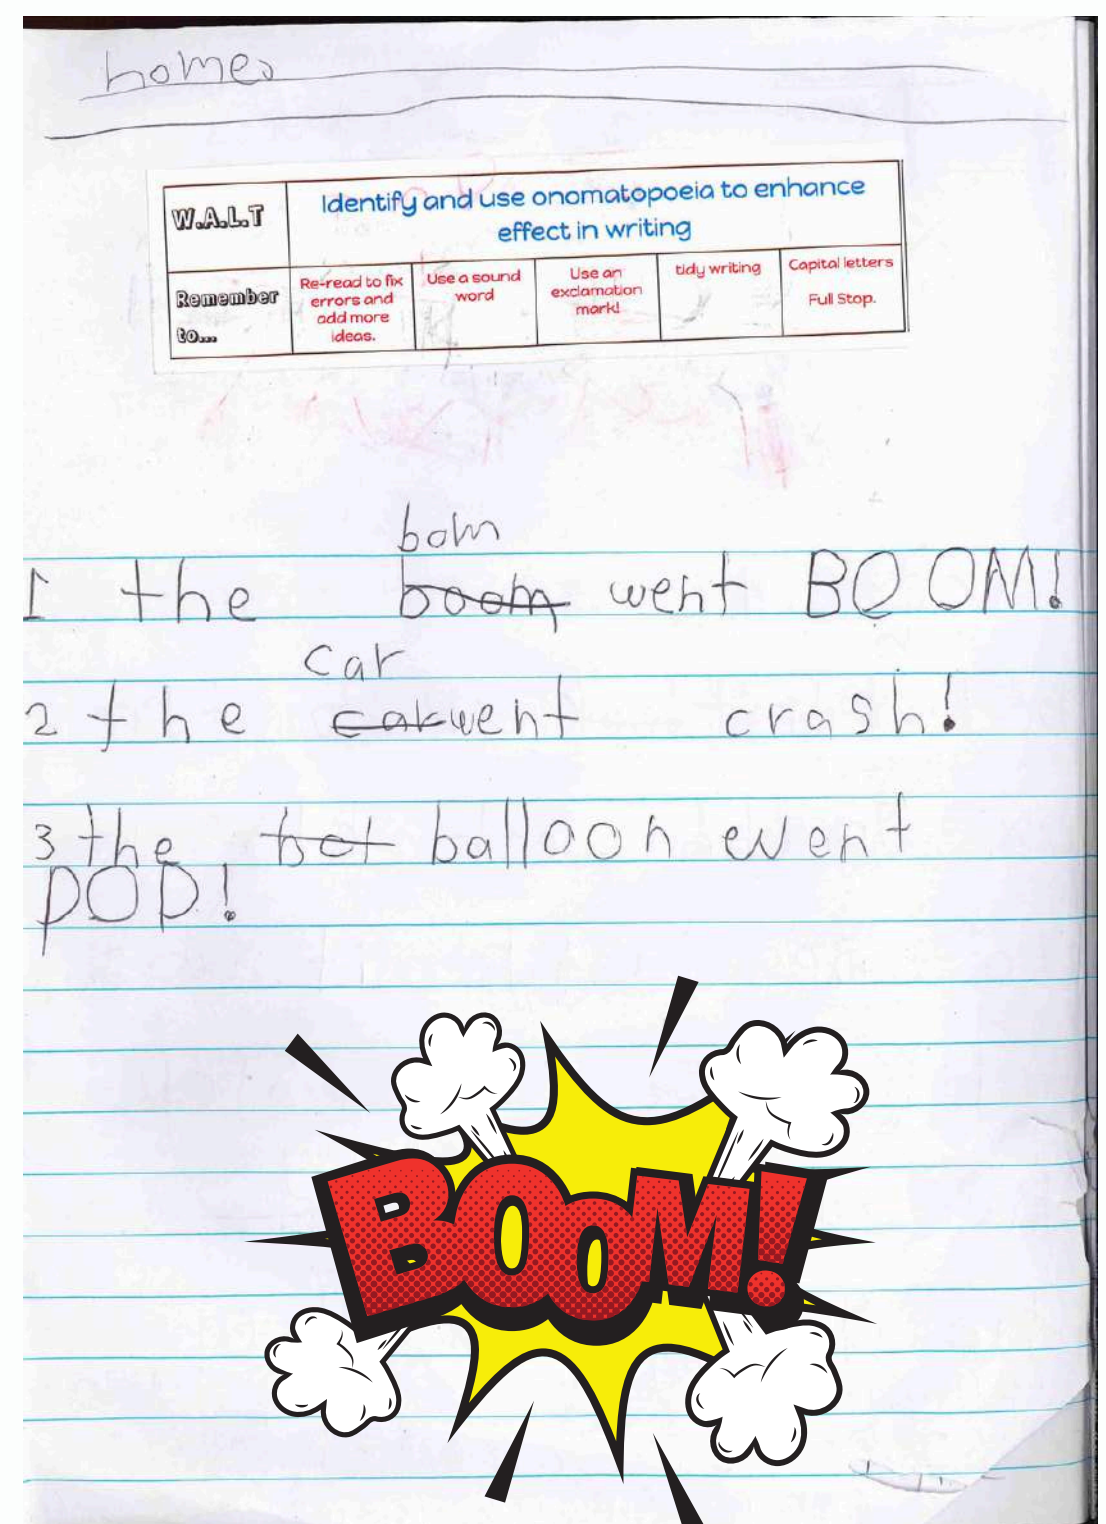 homes
W.A.L.T
Identify and use onomatopoeia to enhance
effect in writing
Remember
to...
Re-read to fix
errors and
add more
ideas.
Use a sound
word
Use an
exclamation
mark!
tidy writing
Capital letters
Full Stop.
bom
1 the boom went BOOM!
car
2 the car went crash!
3 the hot balloon went
POP!
BOOM!